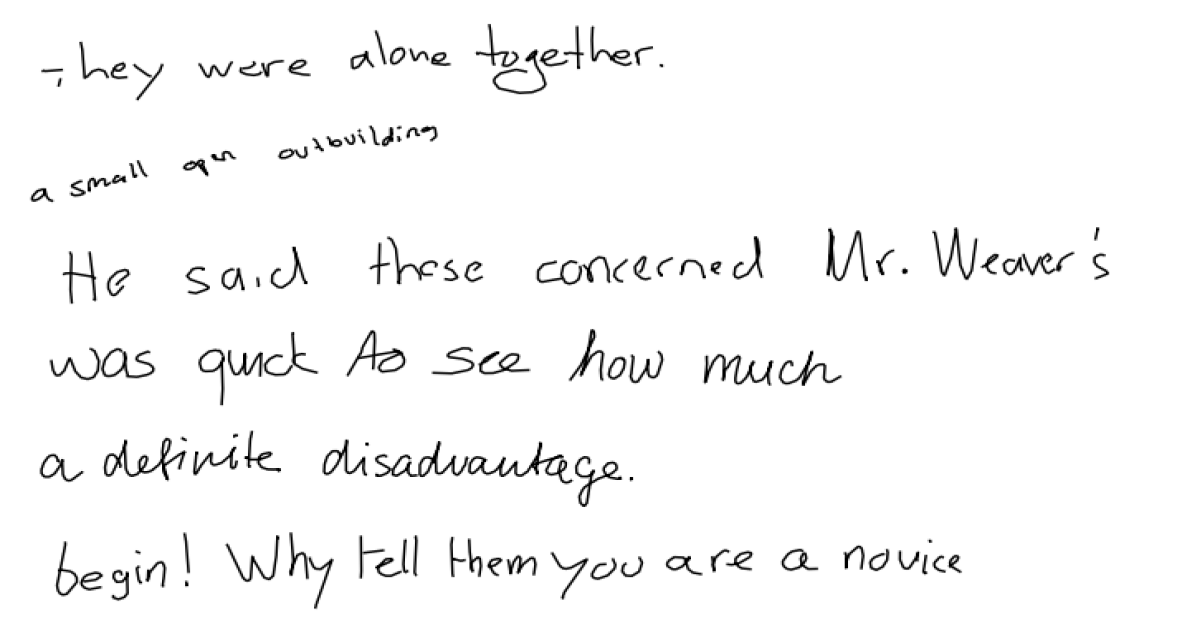 They were alone together.
a small open outbuilding
He said these concerned Mr. Weaver's
was quick to see how much
a definite disadvantage.
begin! Why tell them you are a novice